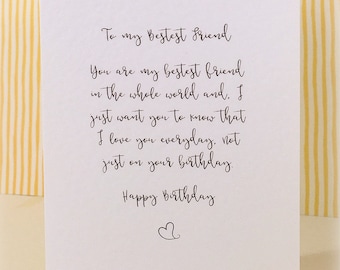 To my Bestest Friend
You are my bestest friend
in the whole world and, I
just want you to know that
I love you everyday, not
just on your birthday.
Happy Birthday